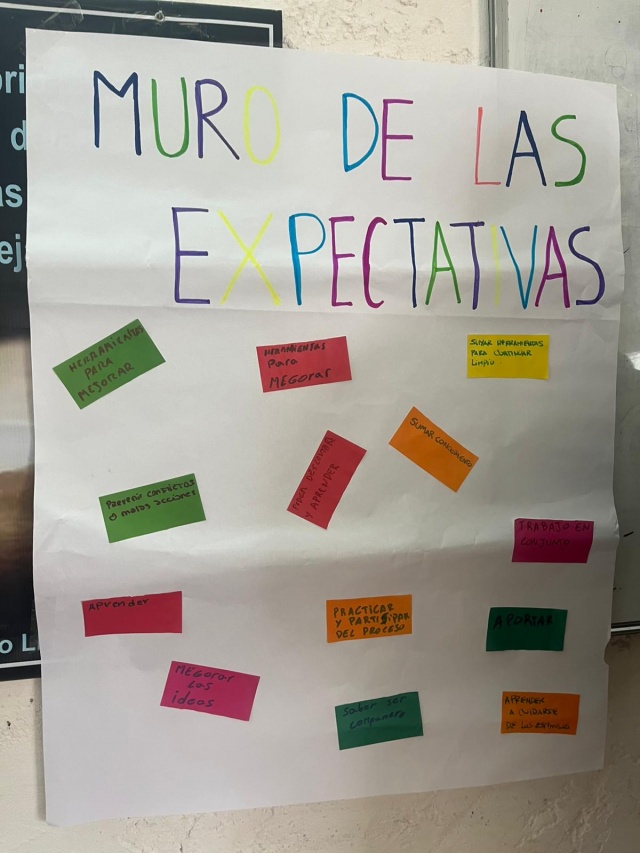 MURO DE LAS
EXPECTATIVAS
HERRAMIENTAS
PARA
MEJORAR
HERRAMIENTAS
Para
MEGorar
SUMAR HERRAMIENTAS
PARA CONTINUAR
LIMPIO
SUMAR CONOCIMIENTO
PARA DEFENDER
Y APRENDER
Prevenir conflictos
o malas acciones
TRABAJO EN
CONJUNTO
Aprender
PRACTICAR
Y PARTISIPAR
DEL PROCESO
APORTAR
MEGorar
Las
ideas
Saber ser
compañero
APRENDER
A CUIDARSE
DE LAS